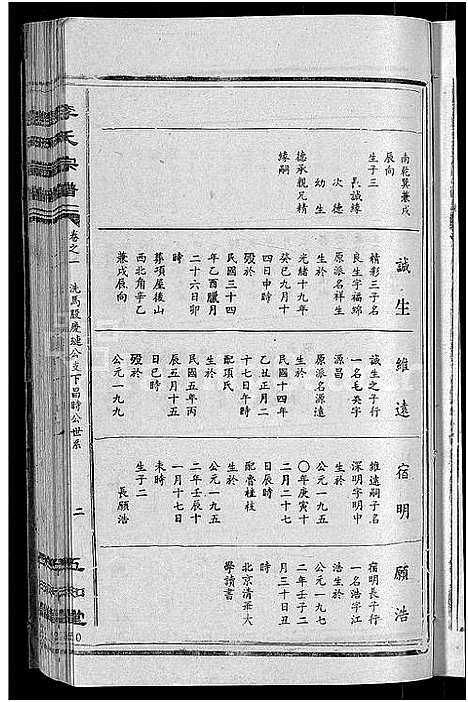 南乾巽兼戌
辰向
生子三
長誠緣
次德
幼生
德承親兄精
緣嗣
誠生
精彩三子名
良生字福綿
原派名祥生
生於
光緒十九年
癸巳九月十
四日申時
歿於
民國三十四
年乙酉臘月
二十六日卯
時
葬項屋後山
西北角辛乙
兼戌辰向
維遠
誠生之子行
一名毛英字
源昌
原派名源遠
生於
民國十四年
乙丑正月二
十七日午時
配項氏
生於
民國五年丙
辰五月十五
日巳時
歿於
公元一九九
宿明
維遠嗣子名
深明字明中
生於
公元一九五
〇年庚寅十
二月二十七
日辰時
配魯桂枝
生於
公元一九五
二年壬辰十
一月十七日
未時
生子二
長願浩
願浩
宿明長子行
一名浩字江
浩生於
公元一九七
二年壬子二
月三十日丑
時
北京清華大
學讀書
李氏宗譜
卷之一
洗馬殿慶璉公支下昌時公世系
二
五知堂